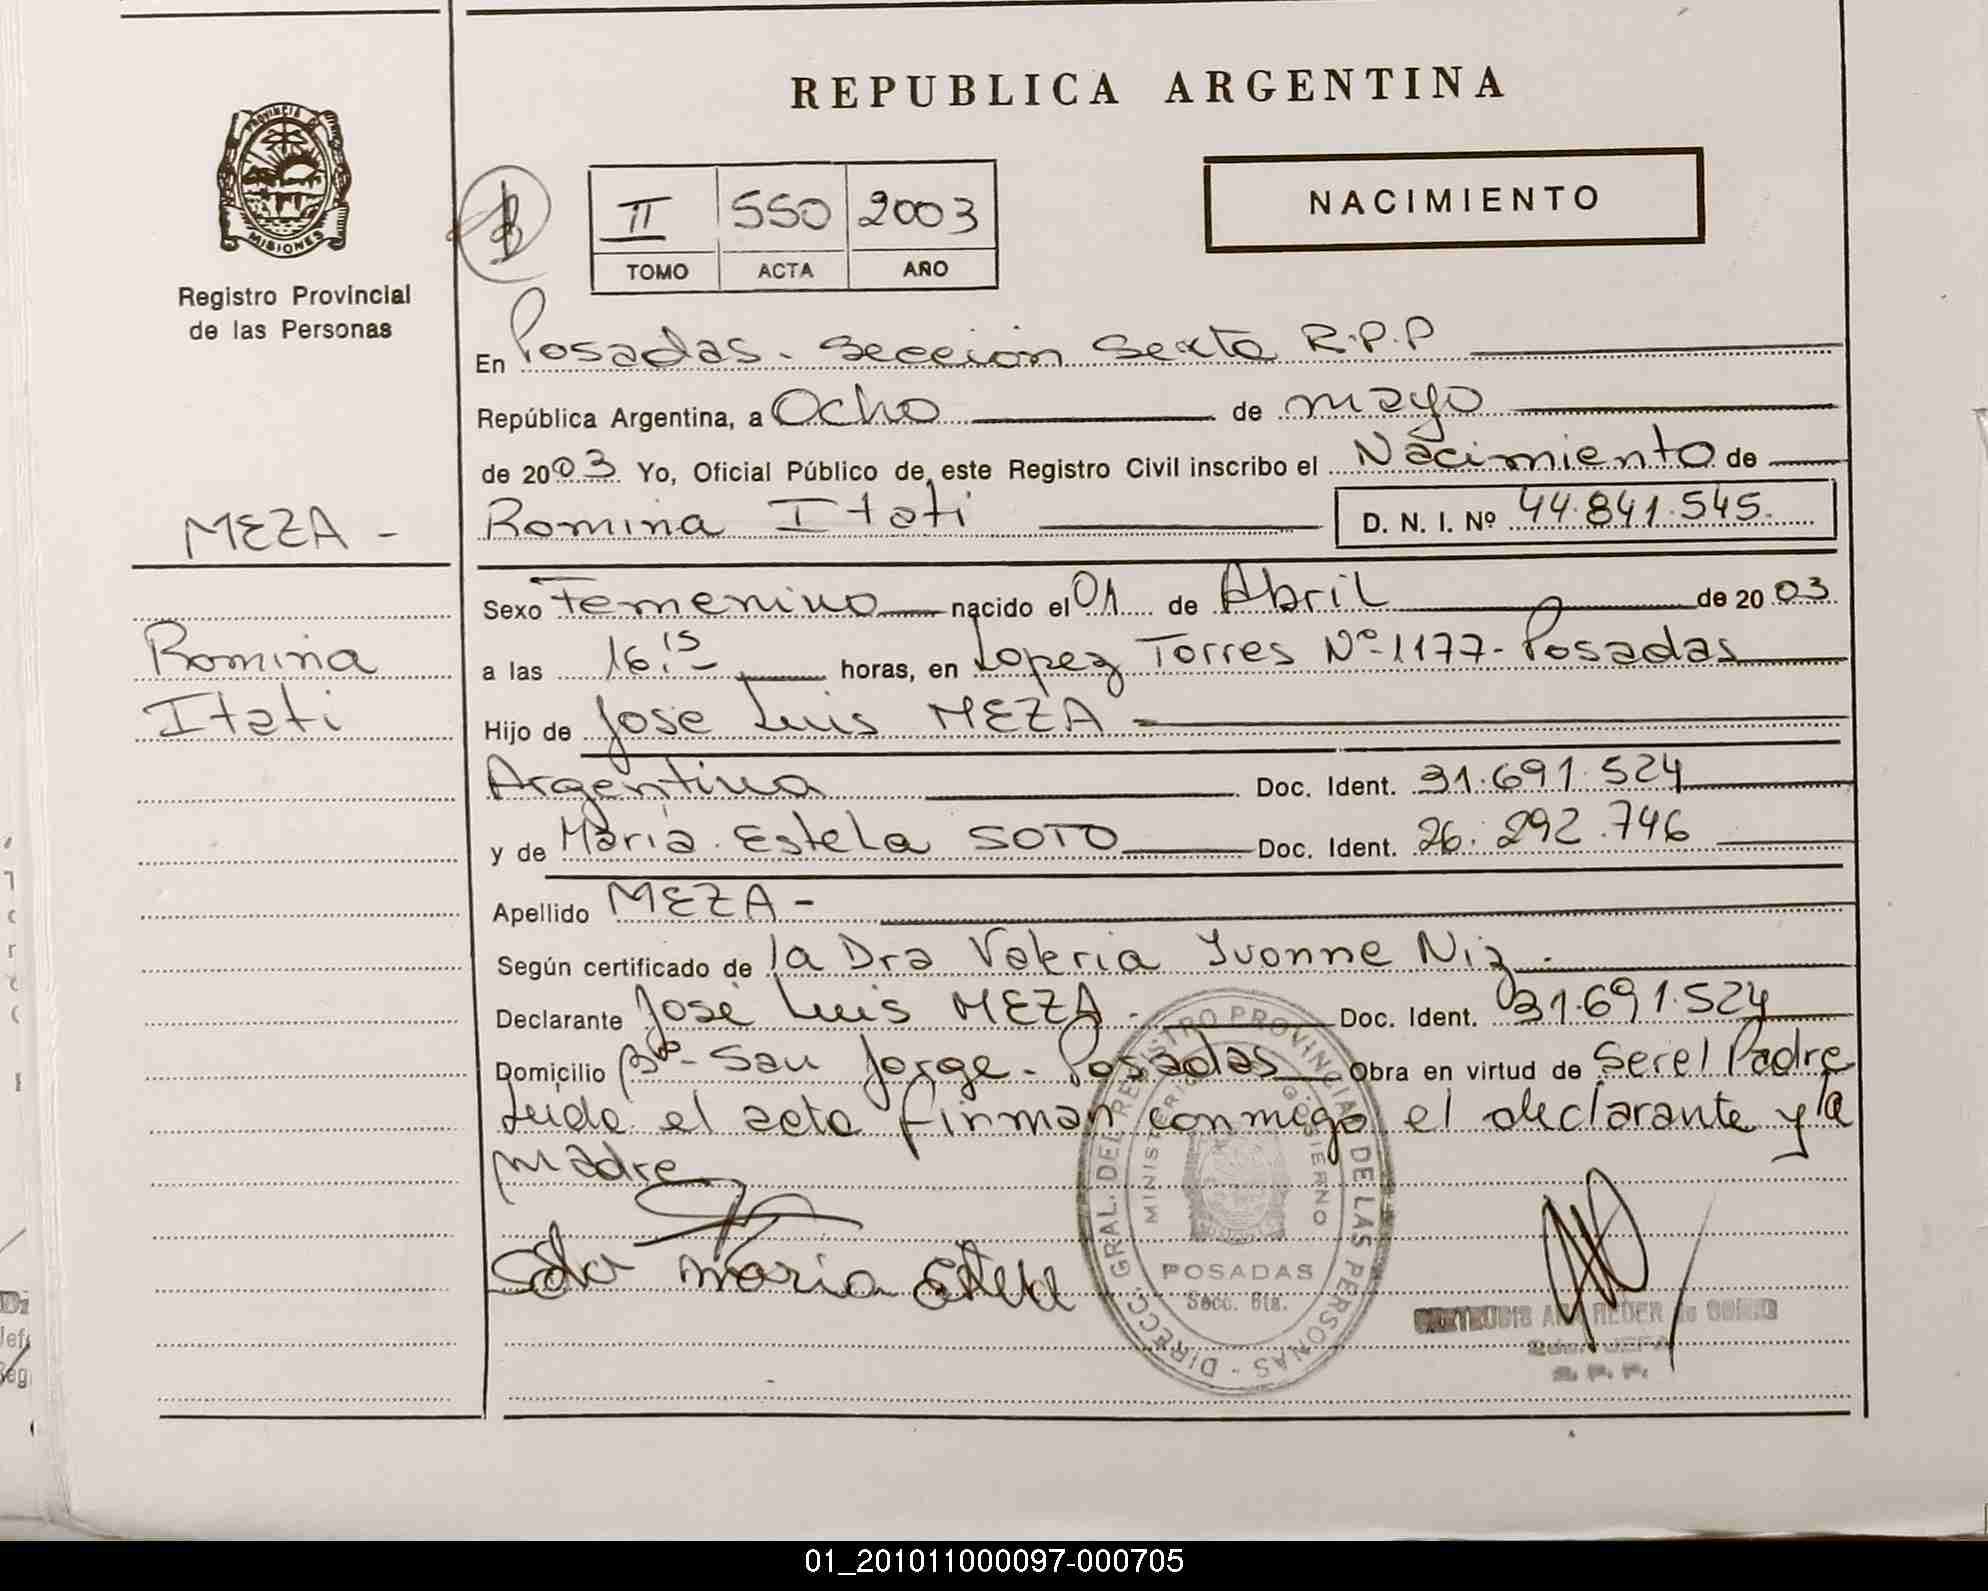 REPUBLICA ARGENTINA
PROVINCIA DE
MISIONES
Registro Provincial
de las Personas
II 550 2003
TOMO ACTA AÑO
NACIMIENTO
En Posadas - Sección Sexta R.P.P
República Argentina, a Ocho de mayo
de 2003 Yo, Oficial Público de este Registro Civil inscribo el Nacimiento de
Romina Itati D. N. I. Nº 44.841.545.
MEZA -
Romina
Itati
Sexo Femenino nacido el 01 de Abril de 2003
a las 16.15 horas, en Lopez Torres Nº 1177 - Posadas
Hijo de José Luis MEZA -
Argentina Doc. Ident. 31.691.524
y de María Estela SOTO Doc. Ident. 26.292.746
Apellido MEZA -
Según certificado de la Dra Valeria Ivonne Niz.
Declarante José Luis MEZA. Doc. Ident. 31.691.524
Domicilio Bº - San Jorge - Posadas Obra en virtud de Ser el Padre
Leida el acta firman conmigo el declarante y la
madre
Soto María Estela
DIRECC. GRAL. DEL REGISTRO PROVINCIAL DE LAS PERSONAS
MINISTERIO GOBIERNO
POSADAS
Secc. 6ta.
01_201011000097-000705